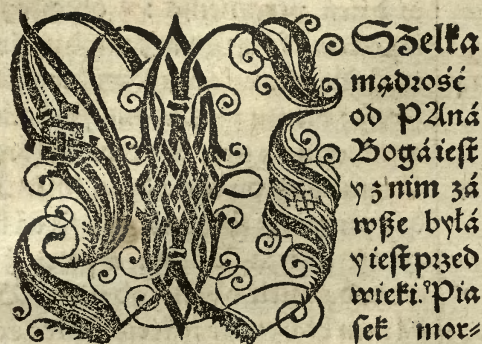 WSzelka
mądrość
od PAná
Bogá iest
y z nim zá
wße byłá
y iest przed
wieki. Pia
sek mor⸗